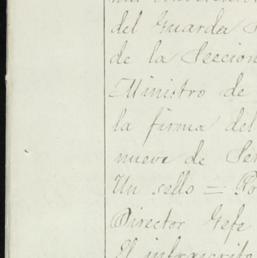 del Guarda
de la Seccion
Ministro de
la firma del
nueve de
Un sello =
Director Gefe
El infrascrito